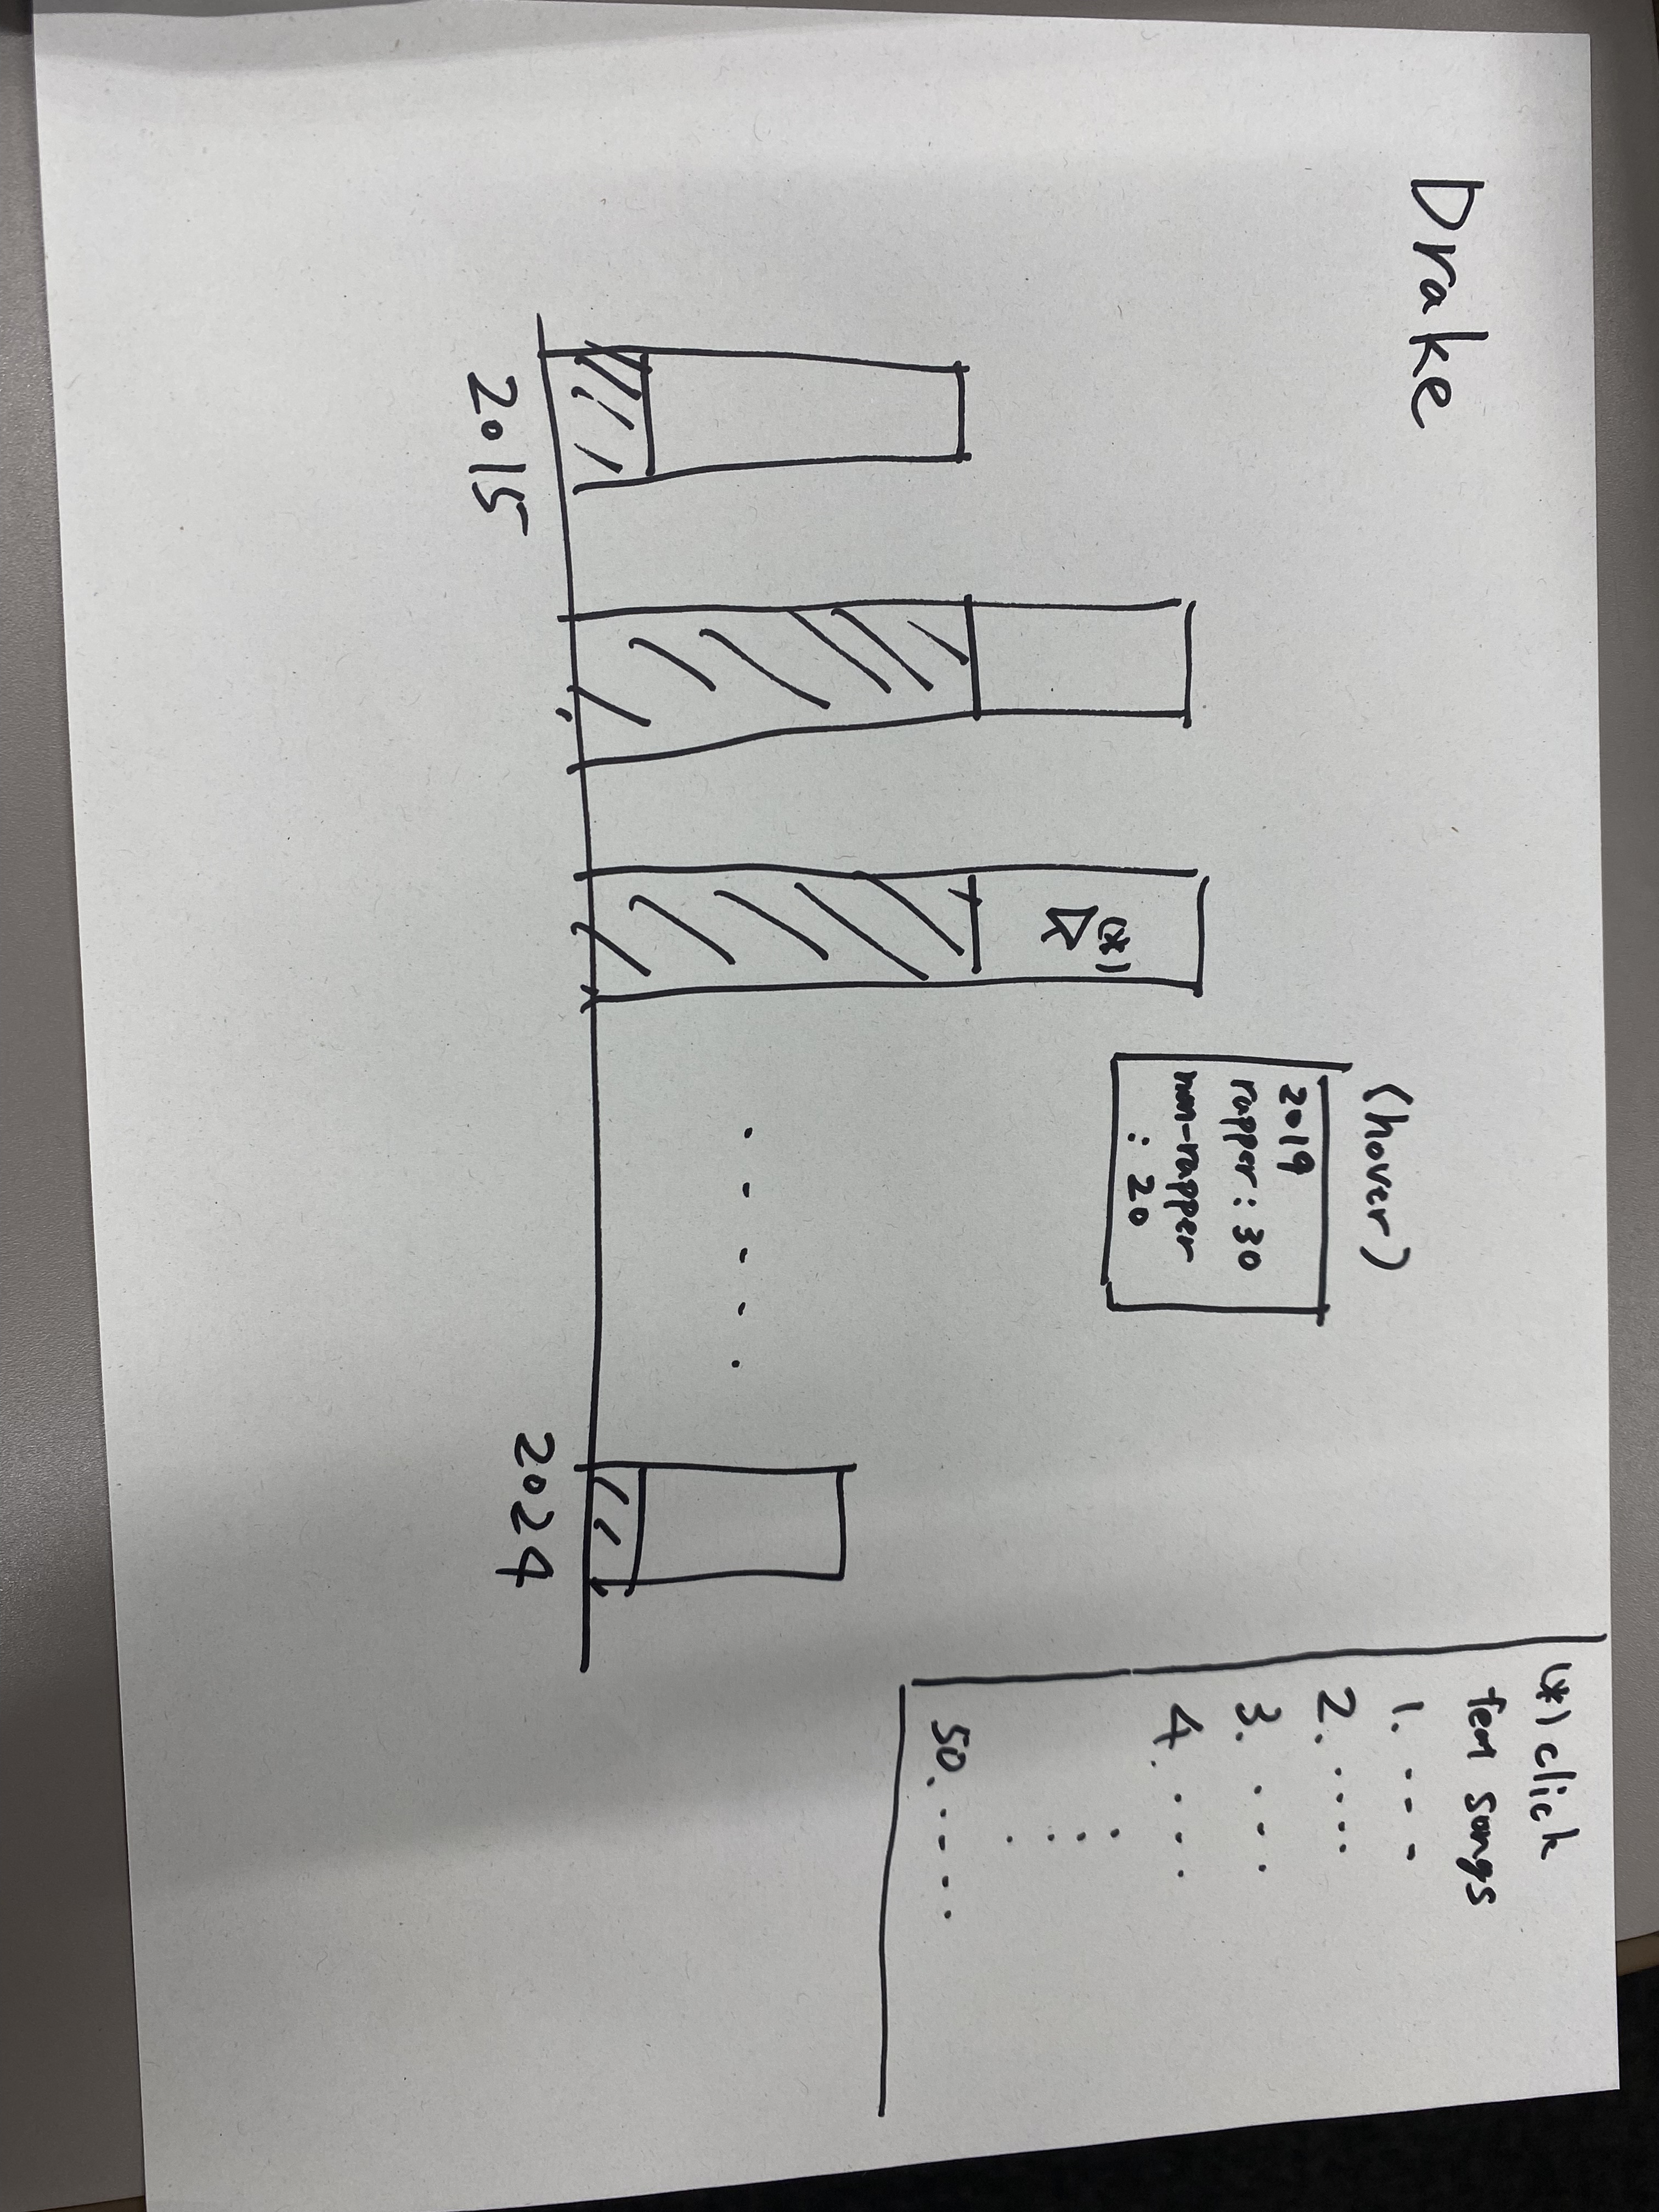 Drake
(hover)
2019
rapper : 30
non-rapper
: 20
(*)
2015
2024
(*) click
feat songs
1. - - -
2. . . . .
3. . - .
4. . . - .
. . . .
50. . - . .